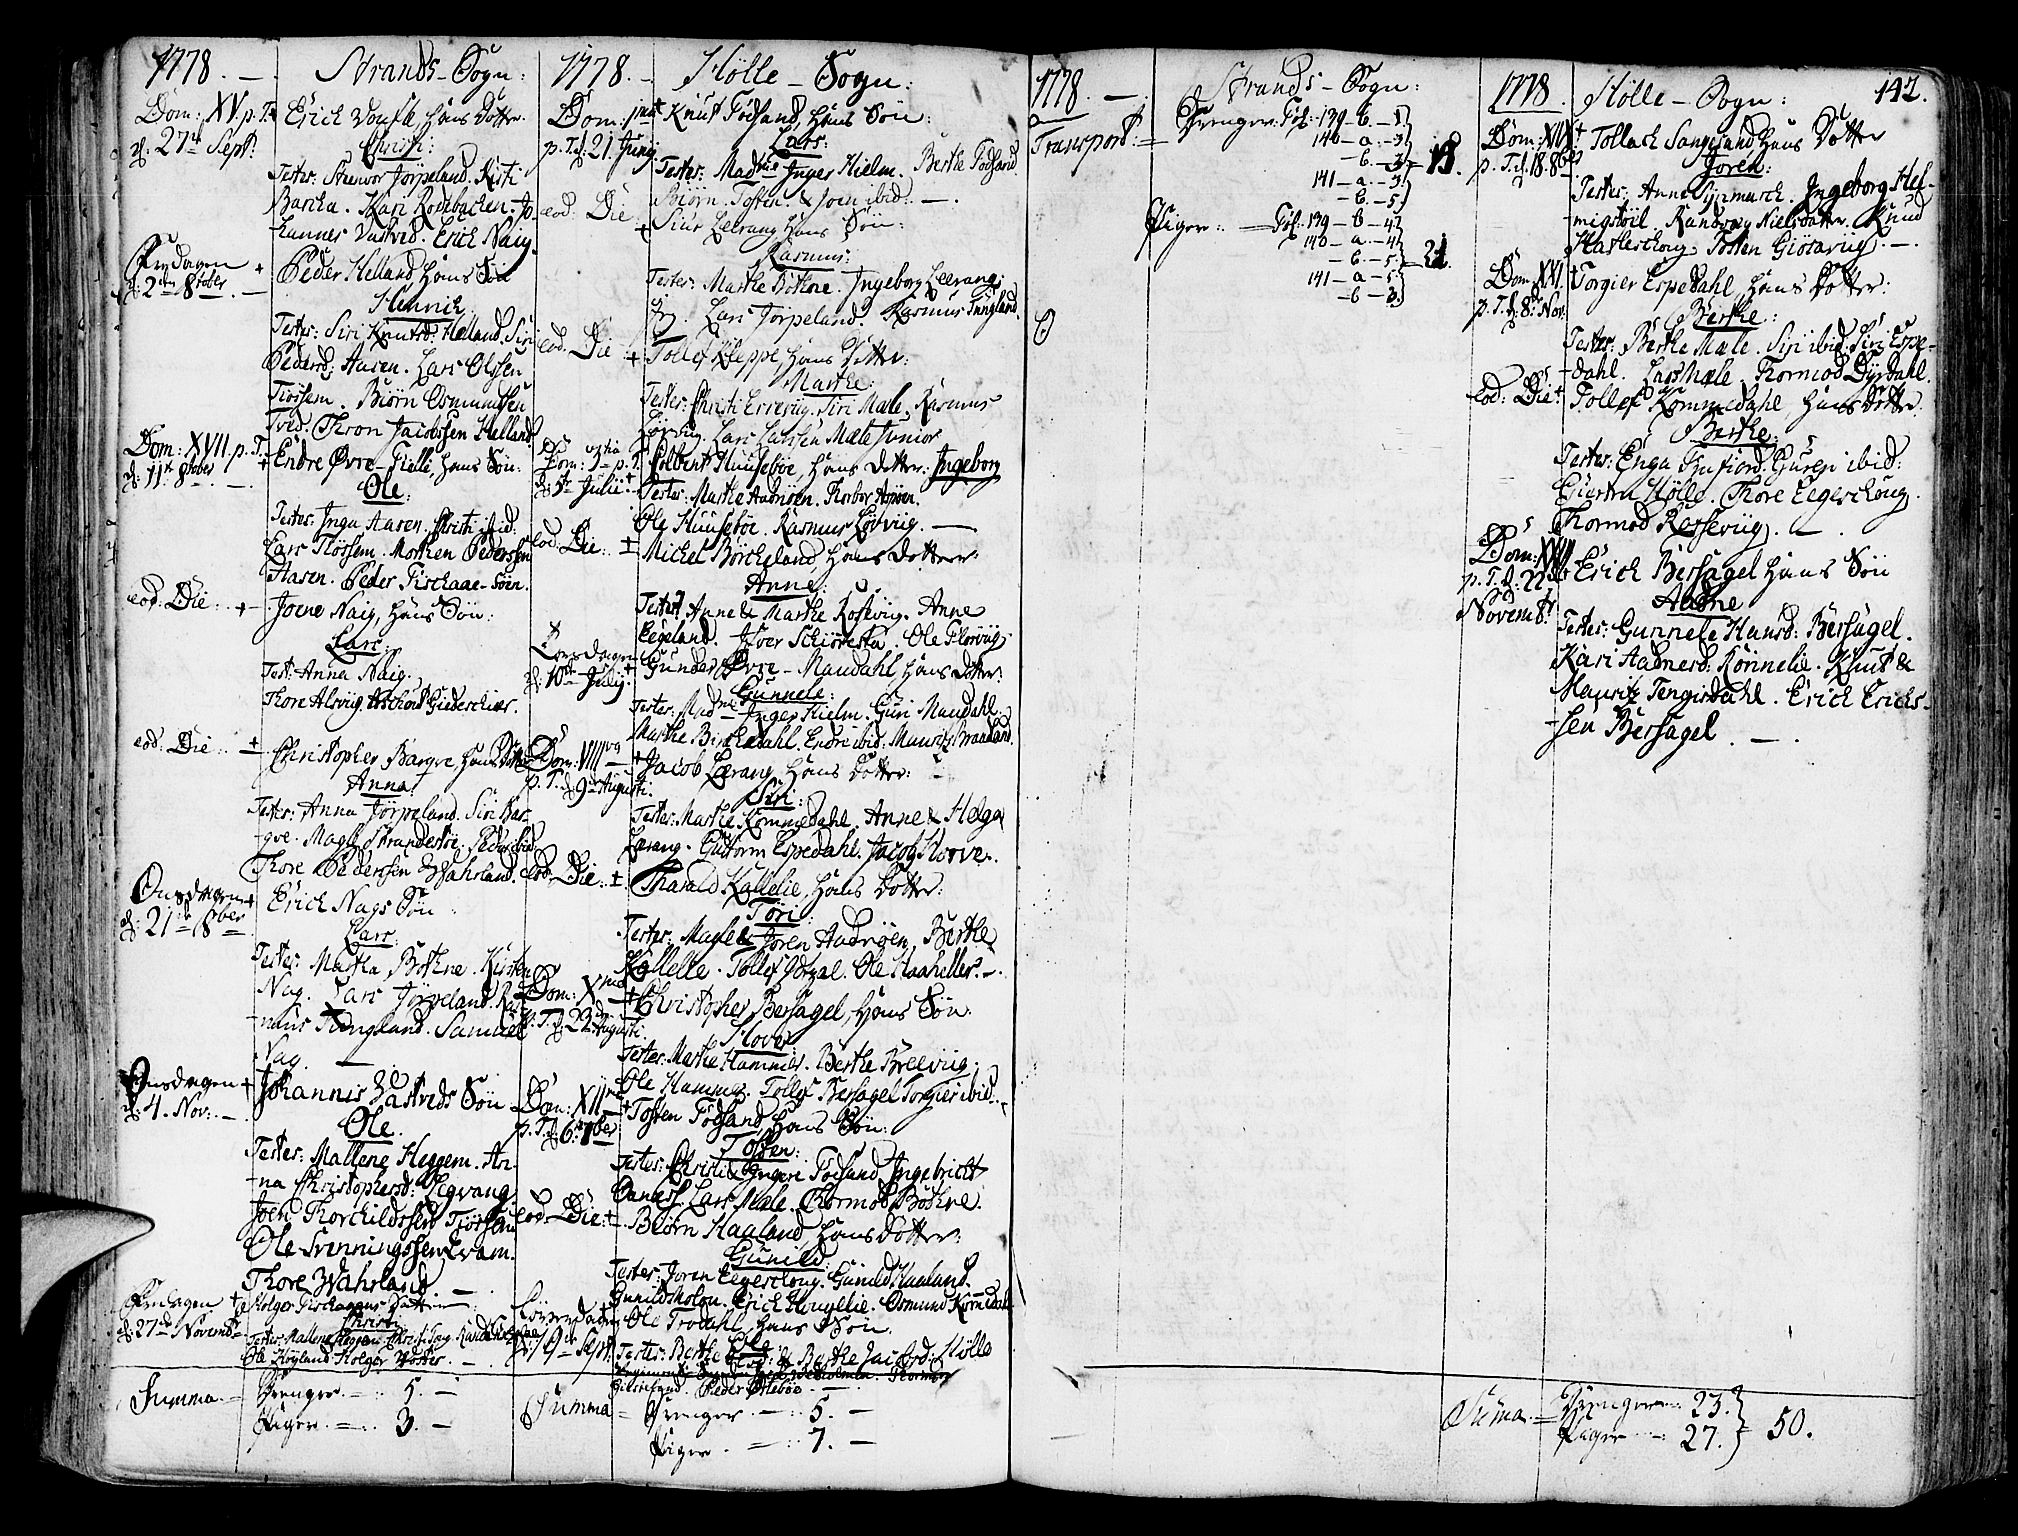 1778. — Strands - Sogn:
Dom: XV. p. T.
d. 27de Sept:
Erich Voufk, hans Dotter:
Christi:
Testes: Steenvor Jörpeland. Kirsti
Barcka. Kari Rossbacken. Jo-
hannes Vastved. Erich Naig.
Fredagen +
d: 2den 8tober —
Peder Helland, hans Sön
Henrich
Testes: Siri Knutsd: Helland. Siri
Pedersd: Aasen. Lars Olssen
Tiössem. Biörn Osmundsen
Tved. Thron Jacobsen Helland
Dom: XVII p. T. +
d: 11te 8tober —
Endre Øvre-Tielli, hans Sön:
Ole:
Testes: Inga Aasen. Christi ibid:
Lars Tiössem. Morthen Pederssen
Aasen. Peder Fischaae-Soen.
eod: Die: +
Joene Naig, hans Sön:
Lars:
Test: Anna Naig.
Thore Alsvig. Giedeschier.
eod: Die: +
Christopher Bargve, hans Dotter
Anna
Testes: Anna Jörpeland. Siri Bar-
gve. Magli Strandestöe. Peder ibid:
Thore Pederssen Wahrland.
Onsdagen +
d: 21de 8ber
Erich Nags Sön
Lars:
Testes: Martha Böthne. Kirsten
Nag. Lars Jörpeland. Ras-
-mus Tungland. Samuel
Nag. —
Onsdagen +
d: 4. Nov: —
Johannis Vastveds Sön
Ole.
Testes: Mallene Heggem. An-
-na Christophersd: Legvang.
Joen Thorchildssen Tiössem
Ole Svenningssen Qvam.
Thore Wahrland —
Fredagen +
d: 27de Novembr
Holger Fischaaens Datter
Christi
Testes: Mallene Heggem. Christi
Ole Höyland Holger
Summa = Drenger. — : 5. —
Piger. — : 3. —
1778. — Hölle - Sogn:
Dom: 1ma
p. T. d. 21. Junij
Knut Fodsand, hans Sön:
Lars:
Testes: Madme Inger Hielm. Berthe Fodsand
Biörn Tosten. & Joen ibid: —
eod: Die +
Siur Leerang hans Sön:
Rasmus:
Testes: Marthe Böthne. Ingeborg Leerang
Lars Jörpeland. Rasmus Tungland.
eod: Die +
Tollef Kleppe, hans Dotter:
Marthe:
Testes: Christi Errevig. Siri Mæle. Rasmus
Lövvig. Lars Larssen Mæle Junior
Dom: 3tia p. T.
d: 5te Julie +
Colbent Huusebøe, hans Dotter: Ingeborg
Testes: Marthe Aadnöen.
Ole Huusebøe. Rasmus Lövviig. —
eod: Die: +
Michel Börcheland, hans Dotter:
Anne:
Testes: Anne & Marthe Rossevig. Anne
Eegeland. Ole Florvig
Torsdagen
d: 10de Julij. +
Gunder Øvre-Maudahl, hans Dotter:
Gunnele:
Testes: Madme Inger Hielm. Guri Maudahl.
Marthe Birchedahl. Endre ibid: Mauritz
Dom: VIII
p. T. d: 9de Augusti.
+ Jacob Lerang, hans Dotter:
Siri:
Testes: Marthe Kommedahl. Anne & Helga
Lerang. Guttorm Espedahl. Jacob Horve.
eod: Die: +
Tharald Kallelie, hans Dotter:
Töri
Testes: Magle & Joren Aadnöen. Berthe
Kallelie. Tollef Ydzal. Ole Haaheller. —
Dom: X
p. T. d. 23 Augusti.
+ Christopher Bersagel, hans Sön:
Hover
Testes: Marthe Hammer. Berthe Breeviig.
Ole Hammer. Tollef Bersagel Torgier ibid.
Dom: XII
p. T. d: 6te 7ber
+ Tosten Fodsand, hans Sön:
Tosten:
Testes: Christi & Ingere Fodsand. Ingebricht
Lars Mæle. Thormod Böthne.
eod: Die: +
Biörn Haaland, hans Dotter:
Gunild:
Testes: Joren Eegerschong. Gunild Haaland.
Gunild Erich Houglie. Osmund Kommedahl
Löverdagen
d: 19de Sept.
Ole Trodahl, hans Sön:
Ole
Testes: Berthe Jacobsd: Hölle
Peder Ørlebøe
Summa = Drenger — : 5. —
Piger. — : 7. —
1778. — Strands - Sogn:
Transport: = Drenger: Fol: 139 - b - 1
140 - a - 3
- b - 3
141 - a - 3
- b - 5
Piger: = Fol: 139 - b - 4
140 - a - 4
- b - 5
141 - a - 5
- b - 3
1778. Hölle - Sogn: 142.
Dom: XVIII +
p. T. d. 18. 8ber
Tollach Sangesand hans Dotter
Joren:
Testes: Anne Ingeborg Hel-
migstöil. Randvæg Nielsdatter. Knud
Haaleschong. Tosten Giöstaviig. —
Dom: XXI.
p. T. d: 8de Nov:
Torgier Espedahl, hans Dotter:
Berthe:
Testes: Berthe Mæle. Siri ibid: Siri Espe-
-dahl. Lars Mæle. Thormod Dyrdahl.
eod: Die +
Tollef Kommedahl, hans Dotter
Berthe:
Testes: Enga ibid:
Hölle. Thore Eegerschong.
Thormod Rossevig. —
Dom: XXIII
p. T. d. 22de
Novembr.
Erich Bersagel hans Sön
Aadne
Testes: Gunnele Hansd: Bersagel.
Kari Aadnesd: Rönnelie. Knut &
Mauritz Tengisdahl. Erich Erichs-
-sen Bersagel. —
Suma. = Drenger — : 23.
Piger — : 27. } 50.